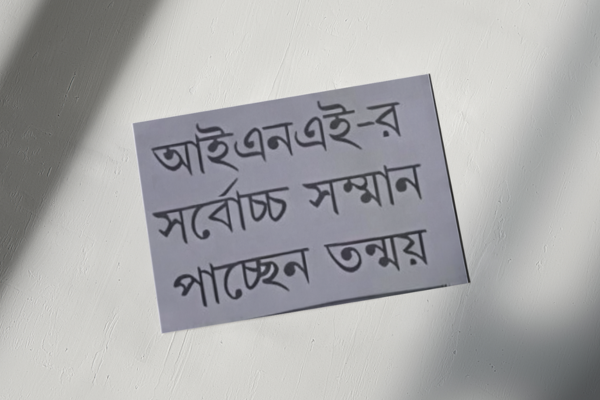 আইএনএই-র
সর্বোচ্চ সম্মান
পাচ্ছেন তন্ময়